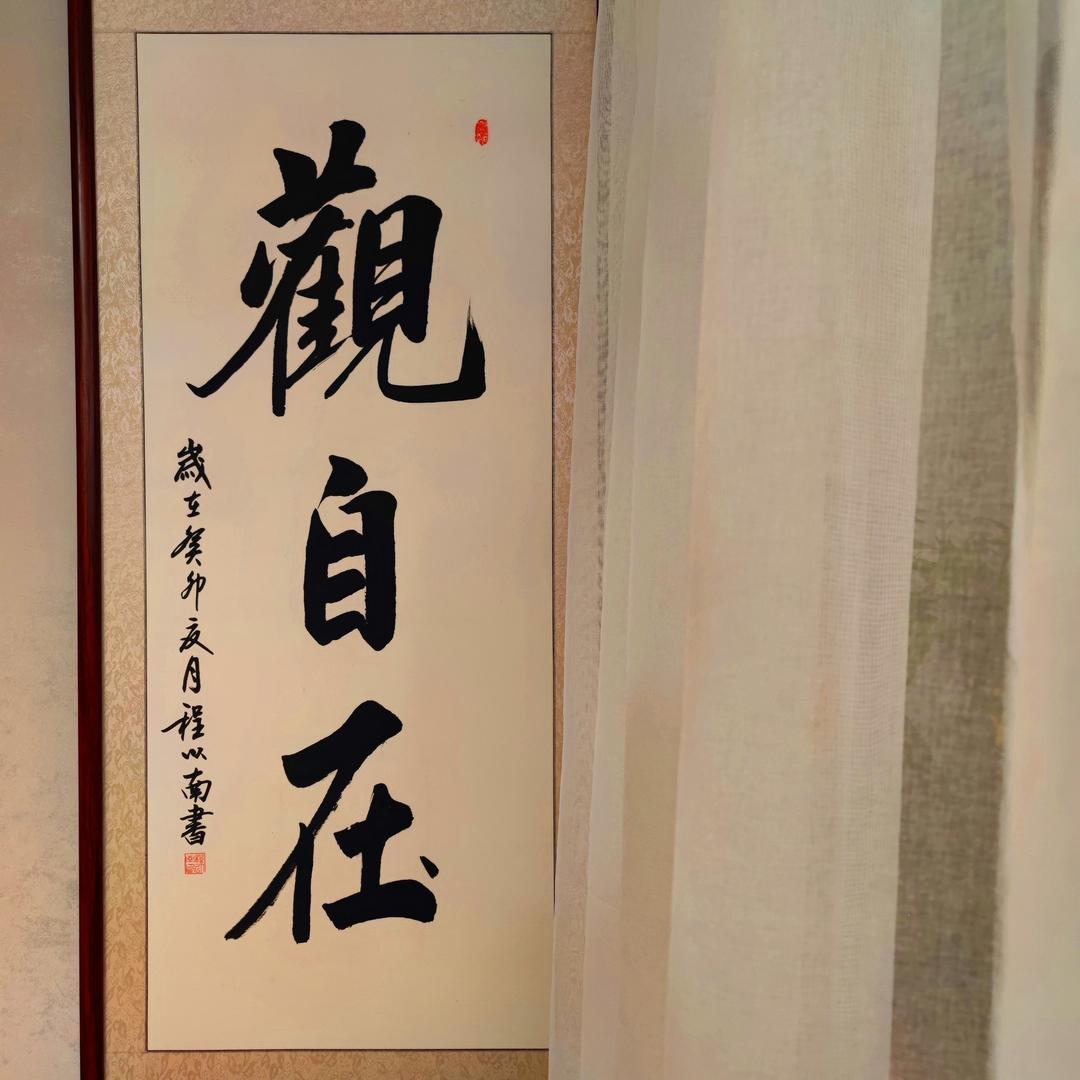 觀自在
歲在癸卯夏月程以南書